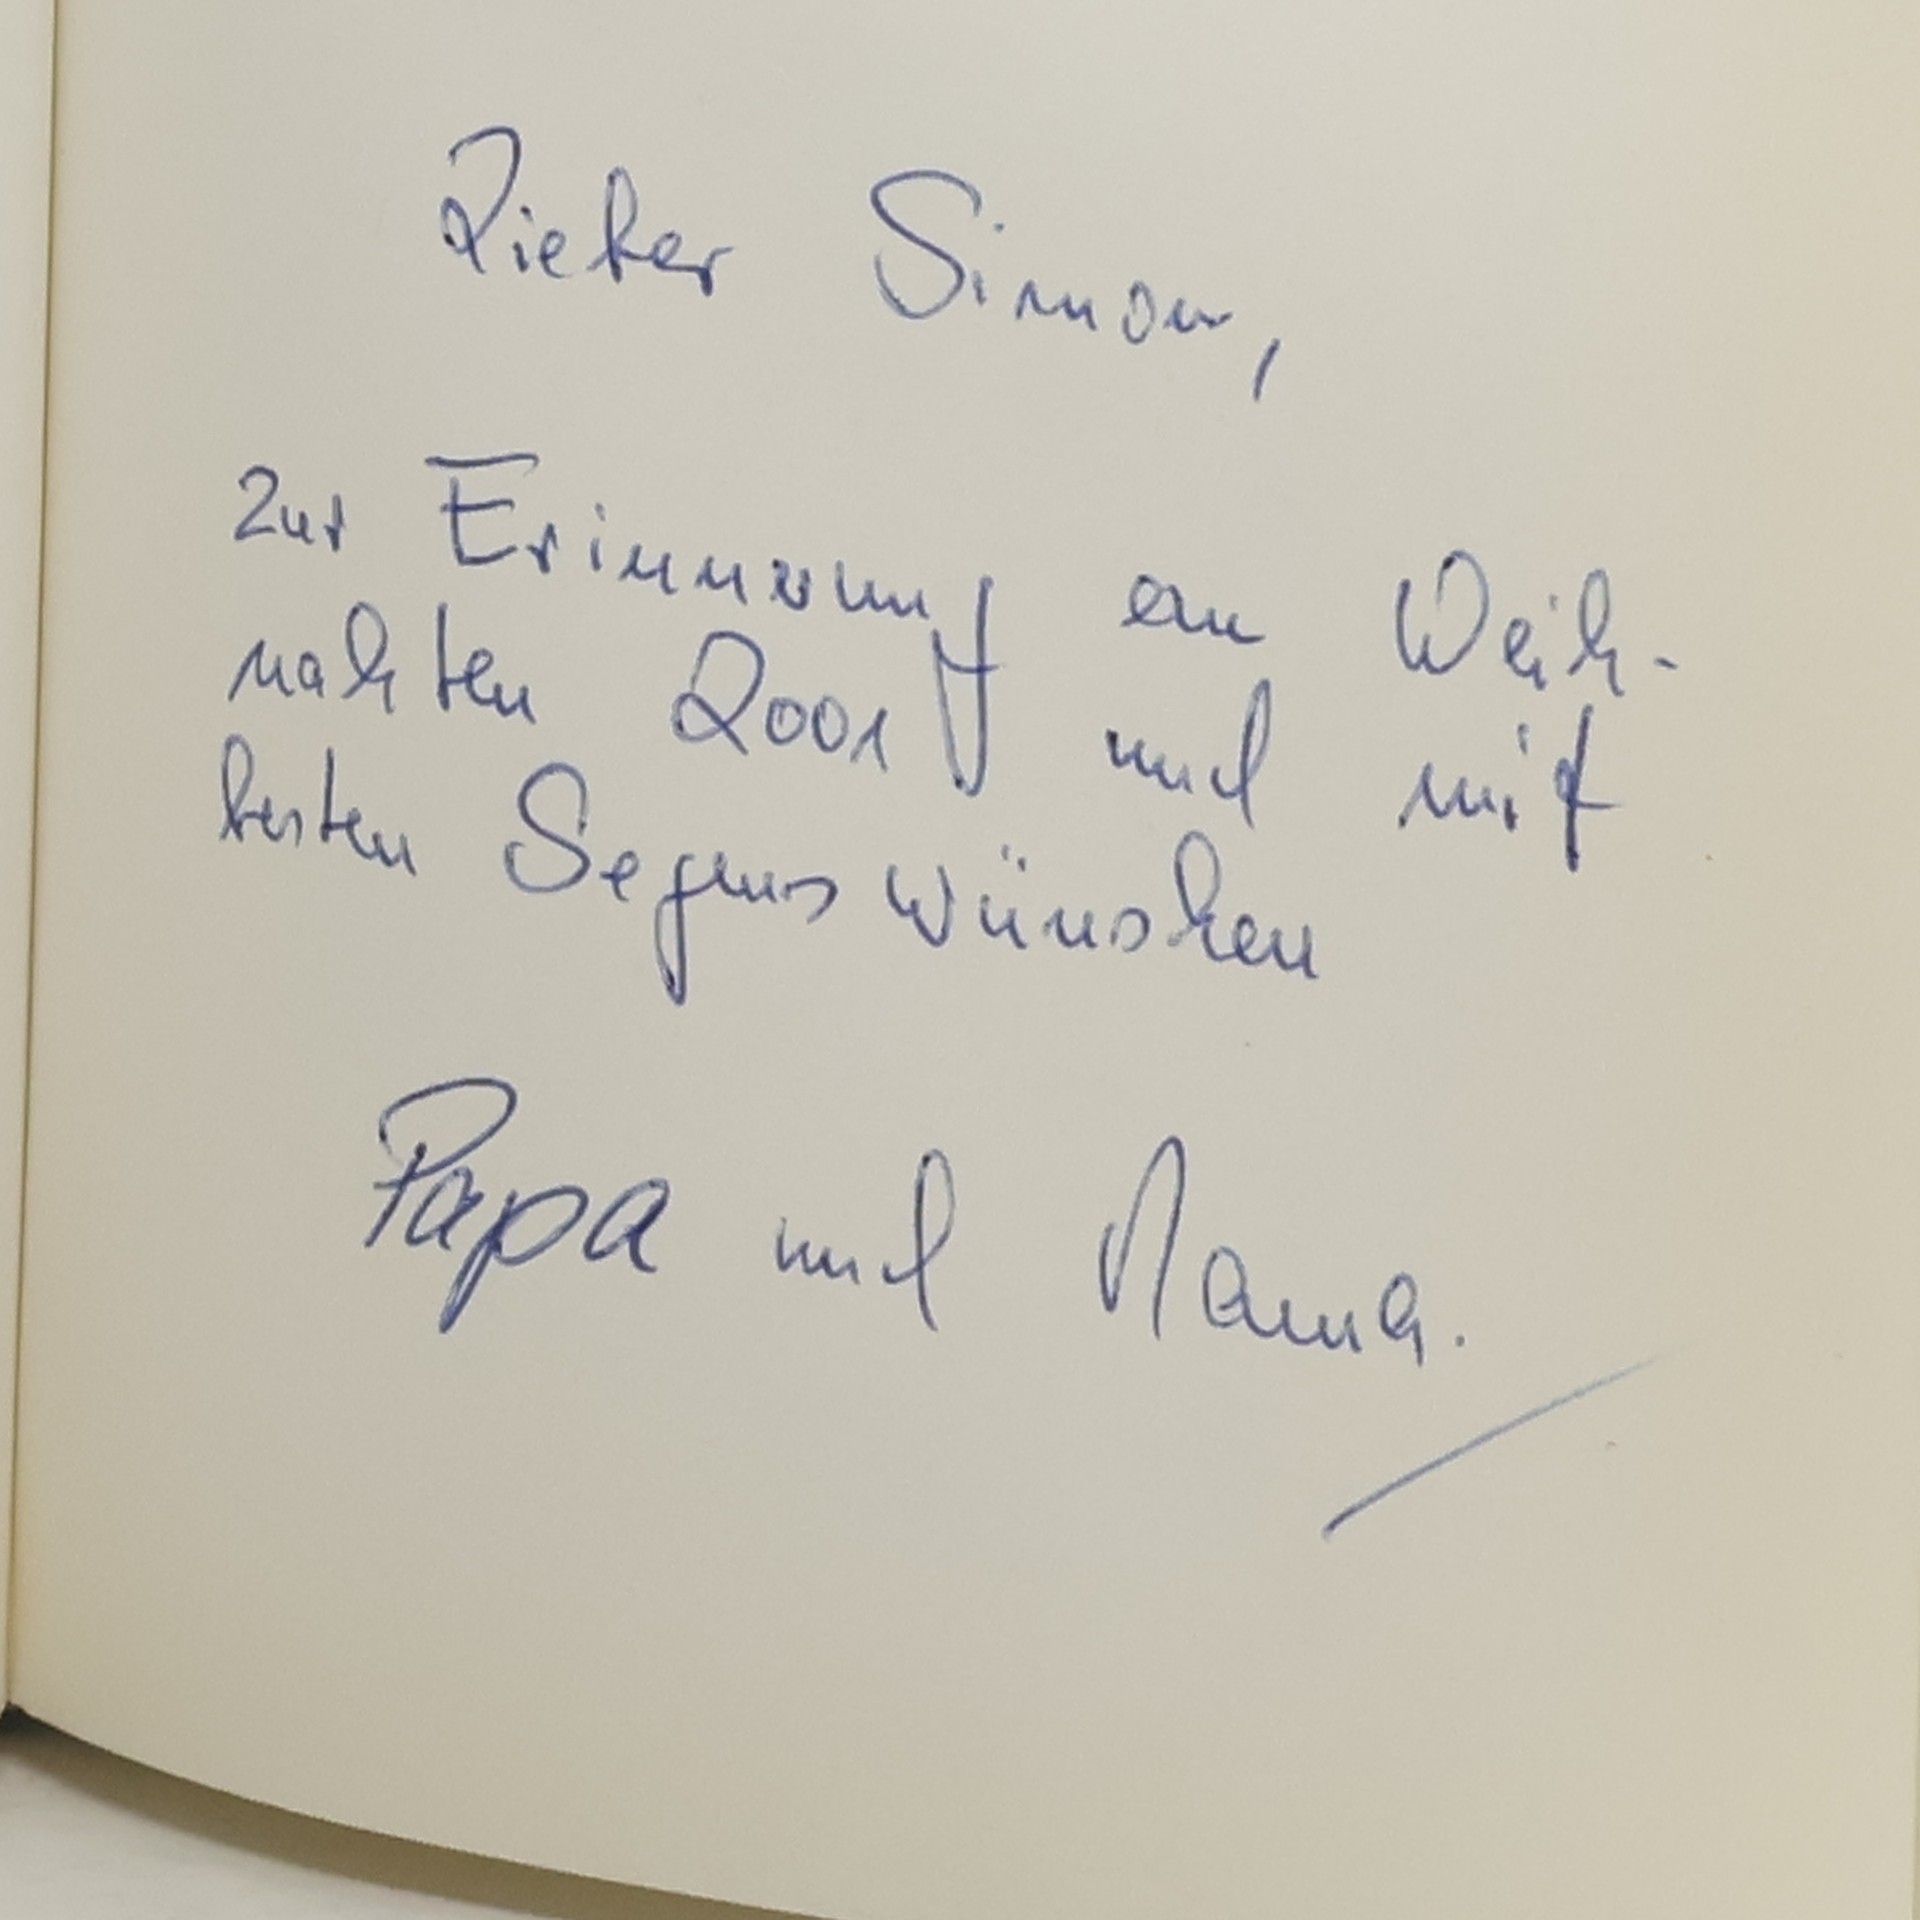 Lieber Simon,
zur Erinnerung an Weih-
nachten 2001 und mit
besten Segenswünschen
Papa und Mama.